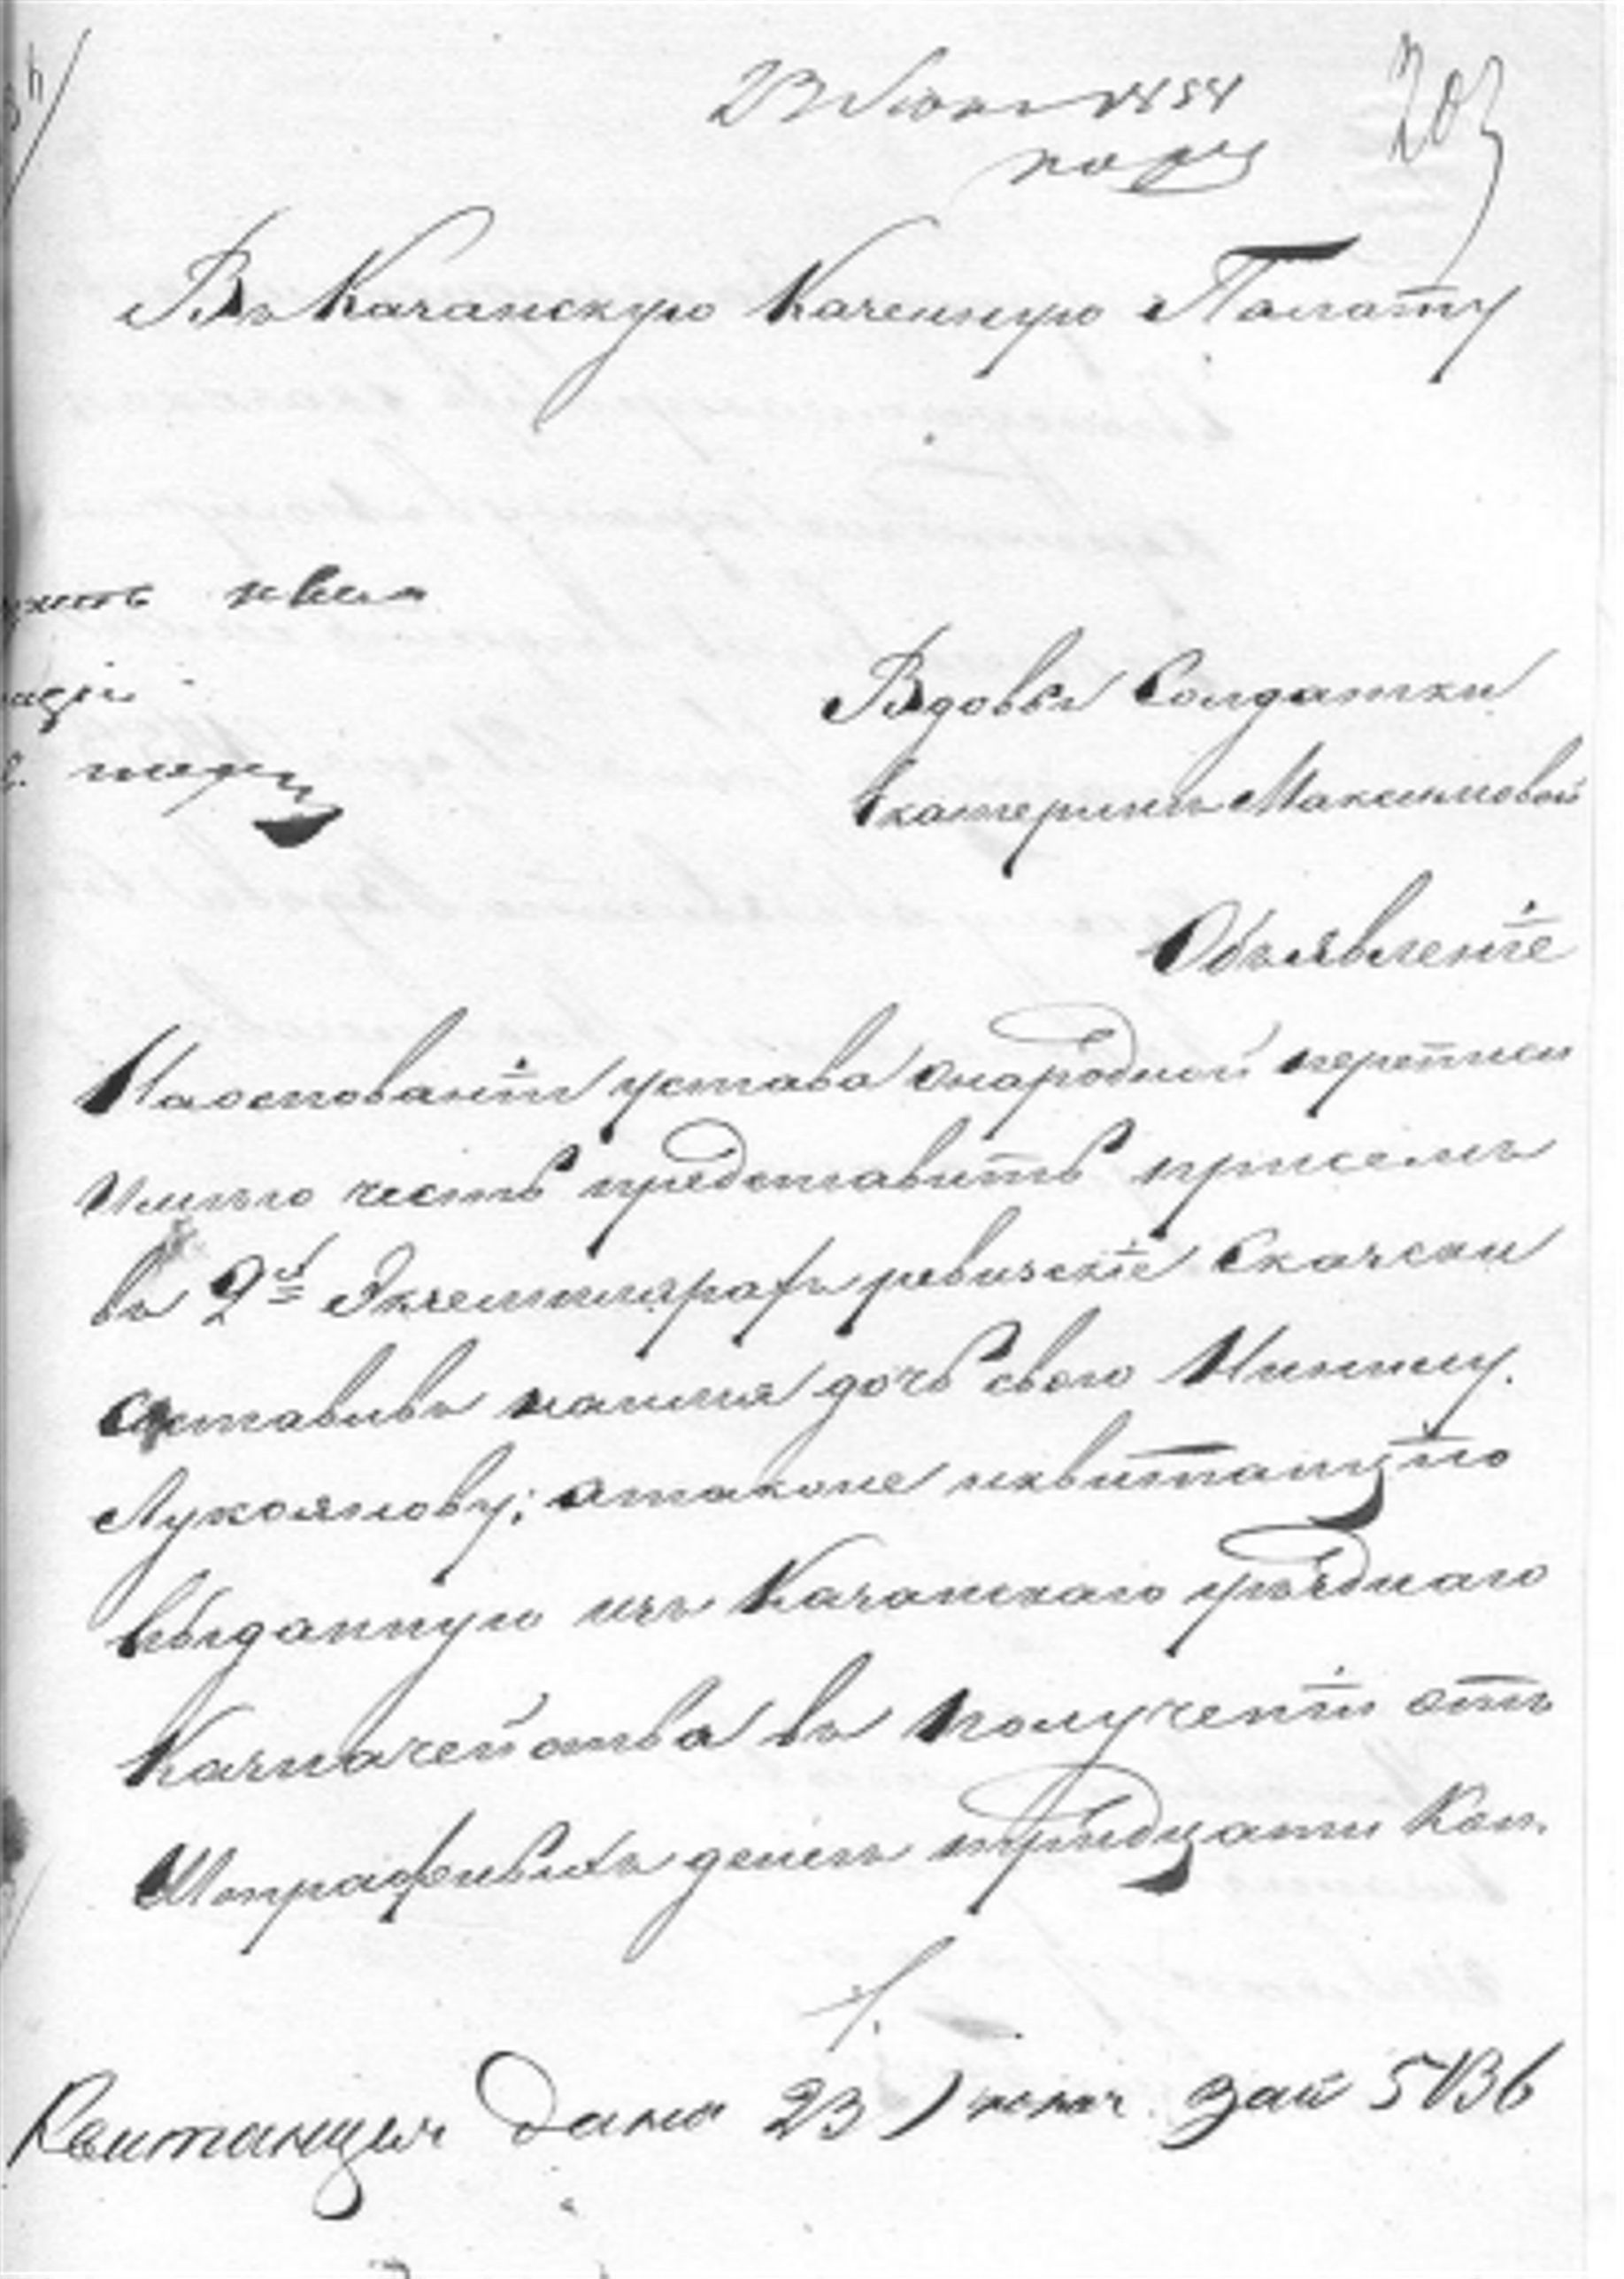 23 Июня 1854
203
Въ Казанскую Казенную Палату
Вдовы Солдатки
Екатерины Максимовой
Объявленіе
На основаніи устава о народной переписи
Имѣю честь представить присемъ
въ 2хъ Экземплярахъ ревизскіе Сказски
оставивъ
дочь свою
Лукоянову; атакже иквитанцію
выданную изъ Казанскаго уѣзднаго
Казначейства въ полученіи отъ
Штрафныхъ денегъ тридцати Коп.
Квитанція дана 23 Іюня за № 5136